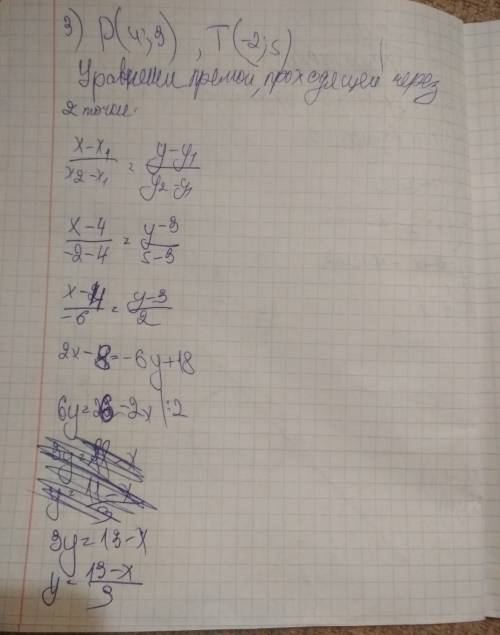 3) P(4;3) , T(-2;5)
Уравнении прямой, проходящей через
2 точки:
x-x₁/x₂-x₁ = y-y₁/y₂-y₁
x-4/-2-4 = y-3/5-3
x-4/-6 = y-3/2
2x-8=-6y+18
6y=26-2x |:2
3y=13-x
y=13-x/3